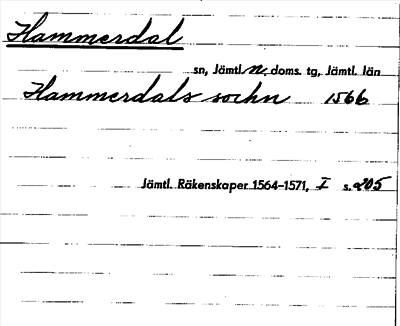 Hammerdal
sn, Jämtl. n. doms. tg, Jämtl. län
Hammerdals sochn 1566
Jämtl. Räkenskaper 1564-1571, I s. 205